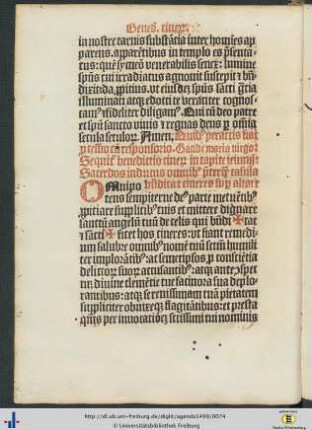 Bened. ciner.
in nostre carnis substãcia inter homĩes ap
parens. apparẽtibus in templo es p̃senta
tus: quẽ symeõ venerabilis senex: lumine
spũs tui irradiatus agnouit suscepit ⁊ bñ
dixit: da ꝓpitius. vt eiusdẽ spũs sãcti gr̃cia
illuminati atqʒ edocti te veraciter cognos-
camꝰ ⁊ fideliter diligamꝰ. Qui cũ deo patre
et spũ sancto viuis ⁊ regnas deus ꝑ om̃ia
secula seculorꝫ. Amen. Quibꝰ peractis fiat
ꝓcessio cũ responsorio. Gaude maria virgo.
Sequit̃ benedictio cinerꝫ in capite ieiunij.
Sacerdos indutus omnibꝰ p̃terqʒ casula
bñdicat cineres sup altare
Omnipo
tens sempiterne deꝰ parce metuẽtibꝰ
ꝓpiciare supplicibꝰ tuis et mittere dignare
sanctũ angelũ tuũ de celis qui bñdi✠cat
⁊ sãcti✠ficet hos cineres: vt fiant remedi
um salubre omnibꝰ nomẽ tuũ sctũm humili
ter implorãtibꝰ: ac semetipsos ꝓ consciẽtia
delictorꝫ suorꝫ accusantibꝰ: atqʒ ante ꝯspec
tũ diuine clemẽtie tue facinora sua deplo
rantibus: atqʒ serenissimam tuã pietatem
suppliciter obnixeqʒ flagitãtibus: et presta
q̃sumꝰ per inuocatiõem sctissimi tui nominis
http://dl.ub.uni-freiburg.de/diglit/agenda1480/0074
© Universitätsbibliothek Freiburg